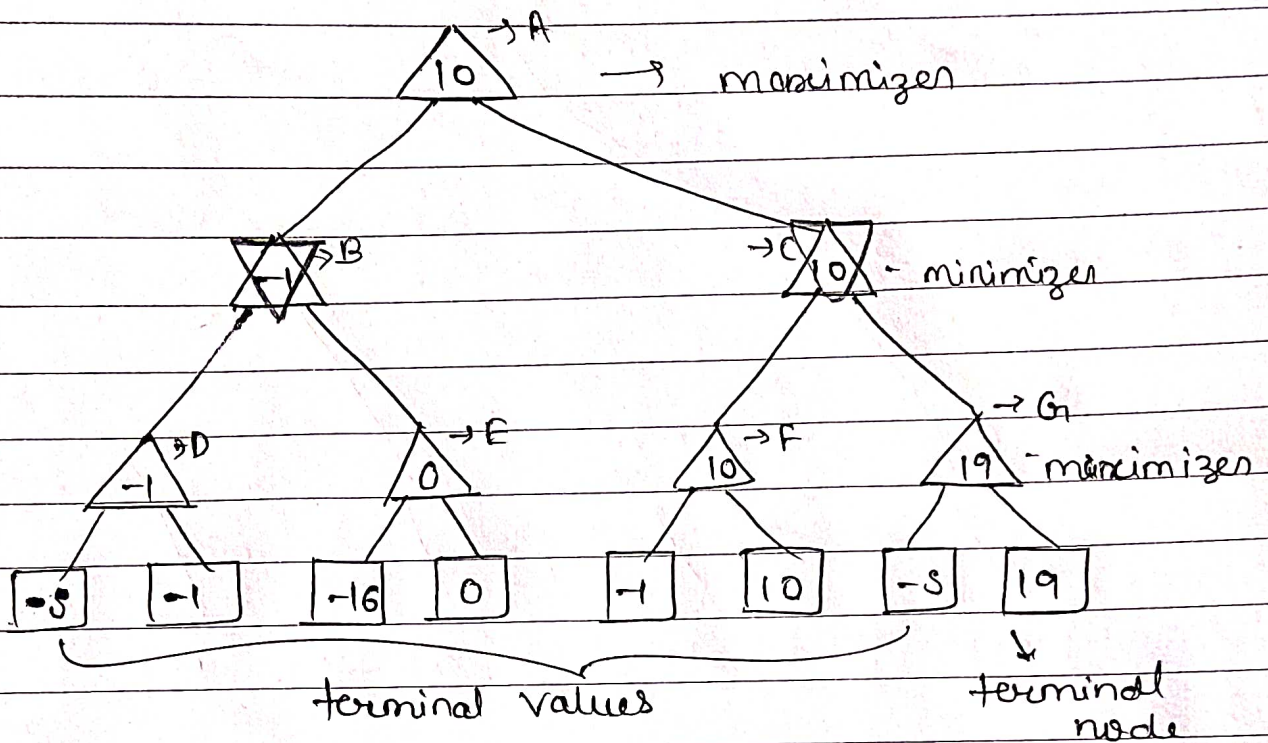 → A
10 → maximizer
-1 → B
→ C 10 - minimizer
-1 → D
0 → E
10 → F
→ G
19 - maximizer
-5 -1 -16 0 -1 10 -5 19
terminal values
terminal
node